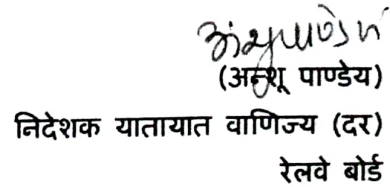 अंशु पाण्डेय
(अन्शू पाण्डेय)
निदेशक यातायात वाणिज्य (दर)
रेलवे बोर्ड